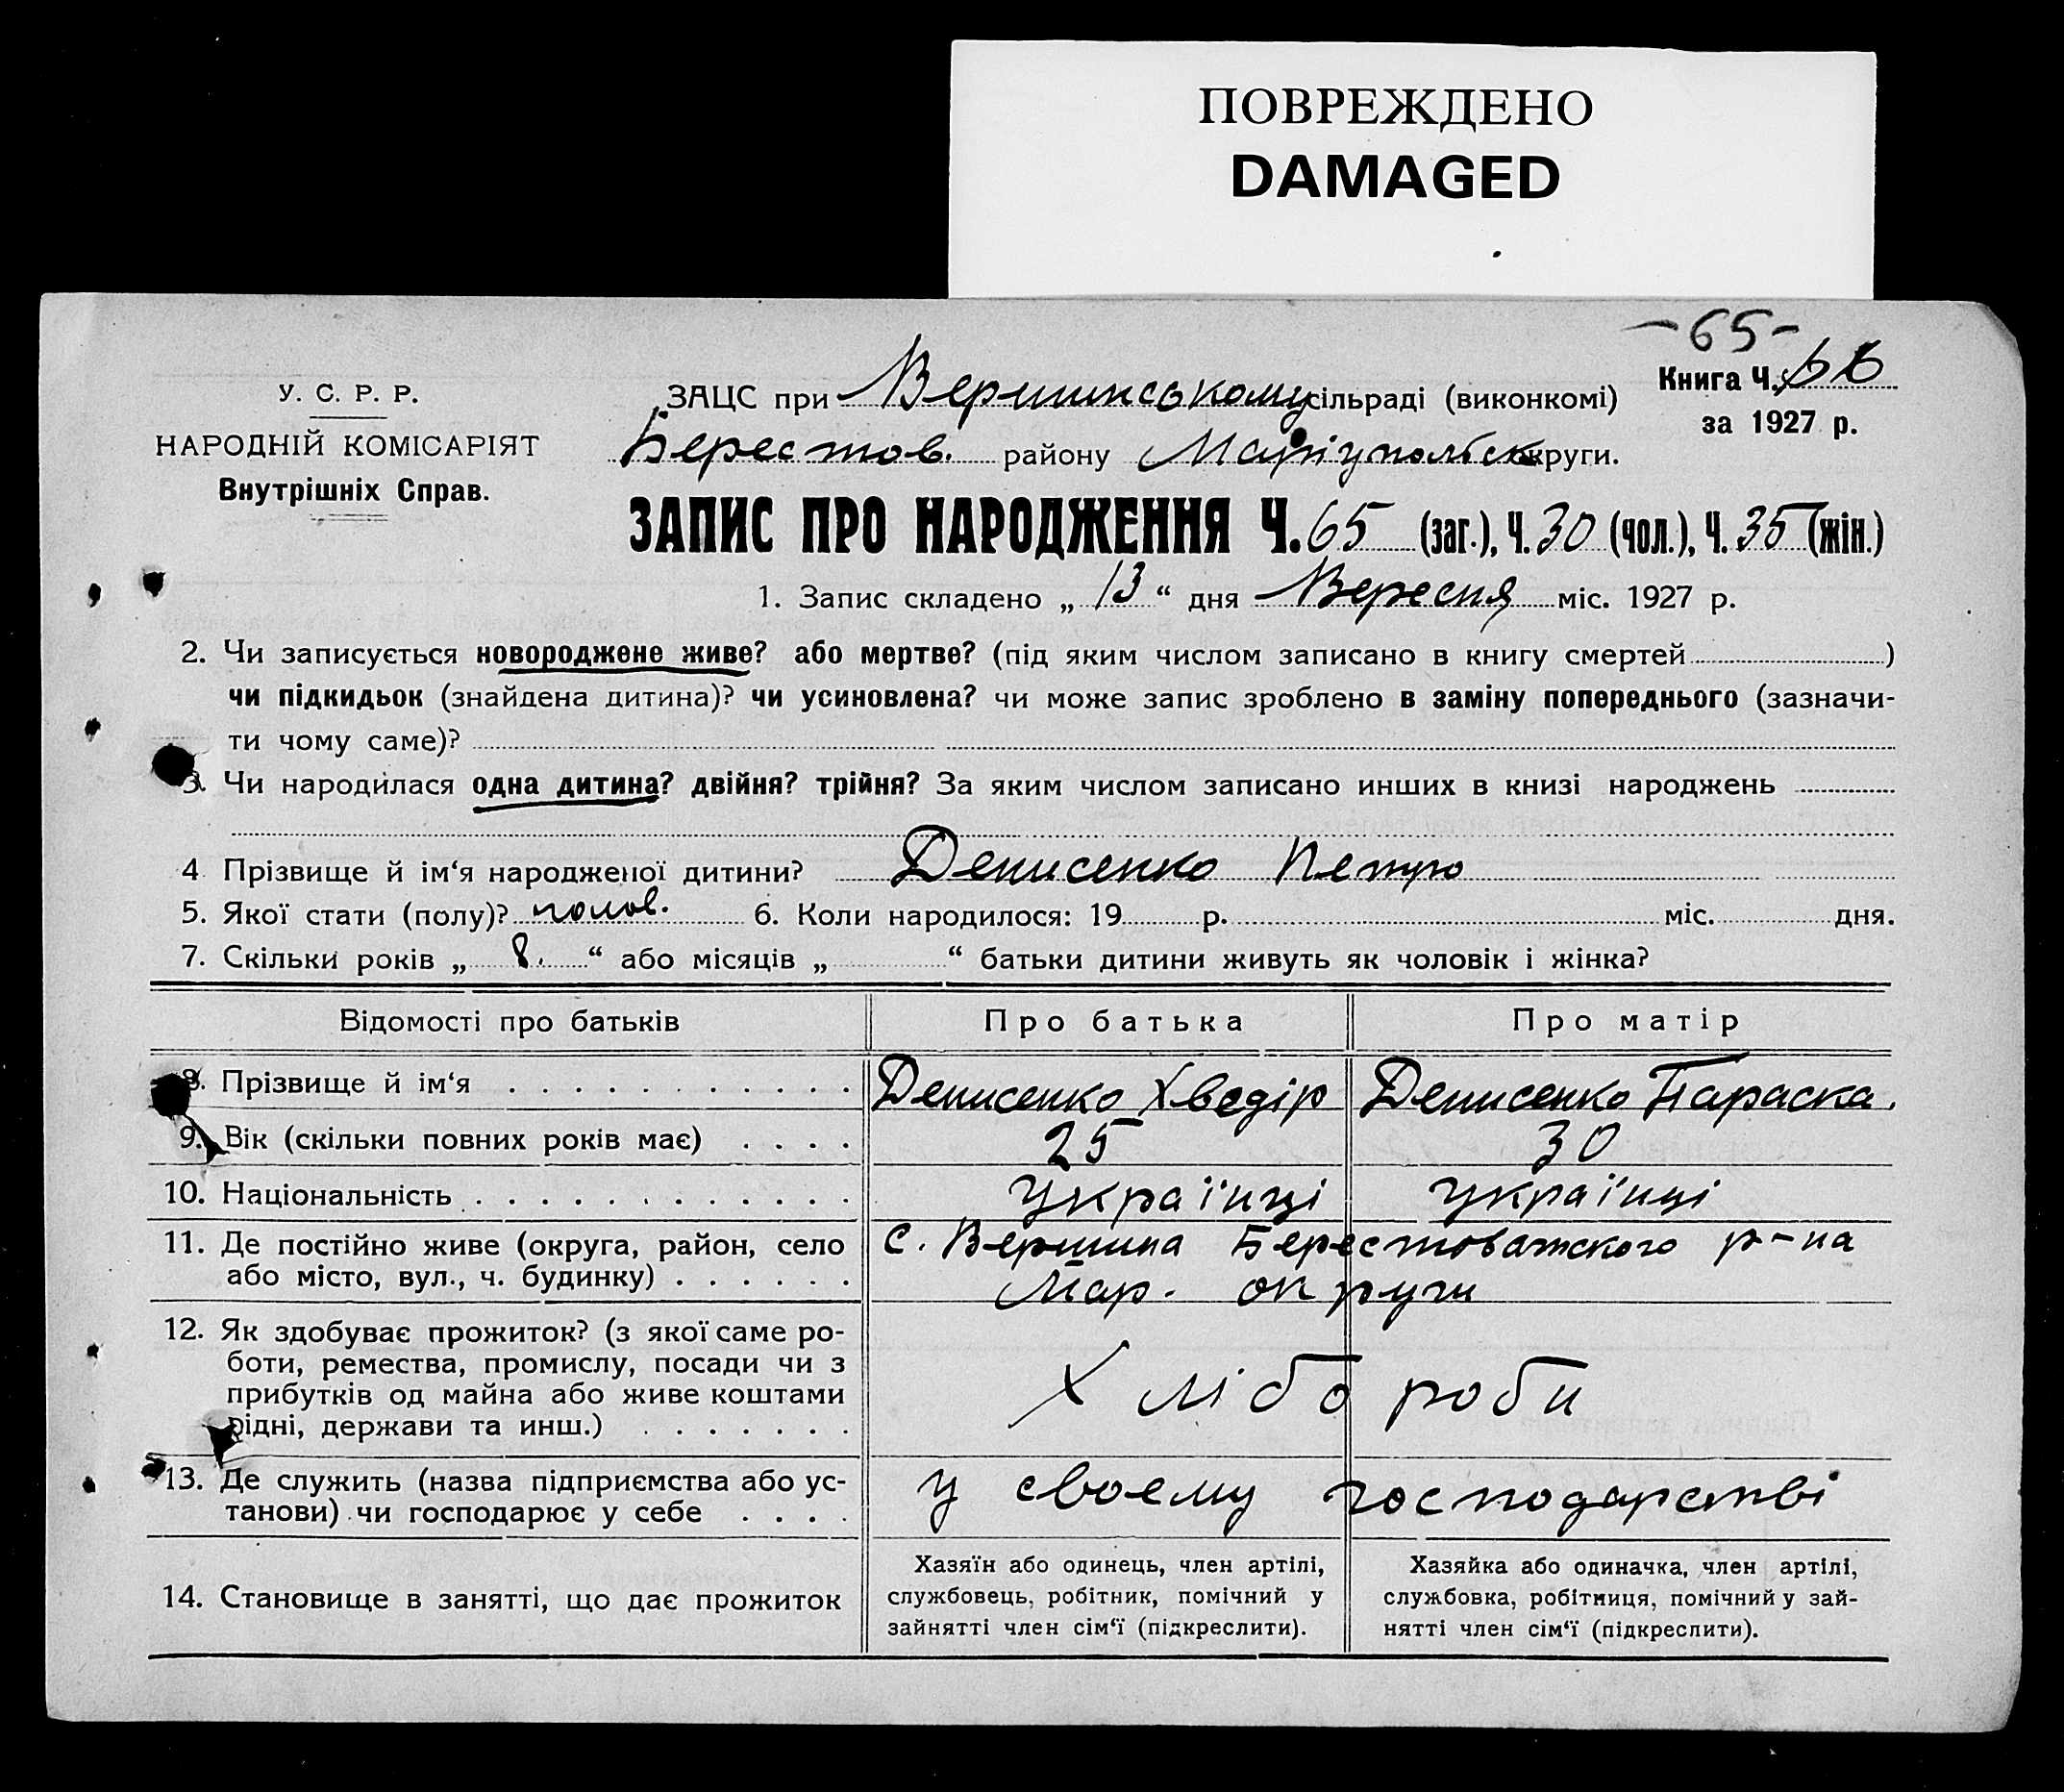 ПОВРЕЖДЕНО
DAMAGED
-65-
У. С. Р. Р.
НАРОДНІЙ КОМІСАРІЯТ
Внутрішніх Справ.
ЗАЦС при Вершинському сільраді (виконкомі)
Берестов. району Маріупольськ округи.
Книга Ч.
за 1927 р.
ЗАПИС ПРО НАРОДЖЕННЯ Ч. 65 (заг.), Ч. 30 (чол.), Ч. 35 (жін.)
1. Запис складено „ 13 “ дня Вересня міс. 1927 р.
2. Чи записується новороджене живе? або мертве? (під яким числом записано в книгу смертей )
чи підкидьок (знайдена дитина)? чи усиновлена? чи може запис зроблено в заміну попереднього (зазначи-
ти чому саме)?
3. Чи народилася одна дитина? двійня? трійня? За яким числом записано инших в книзі народжень
4. Прізвище й ім‘я народженої дитини? Денисенко Петро
5. Якої стати (полу)? чолов. 6. Коли народилося: 19 р. міс. дня.
7. Скільки років „ 8. “ або місяців „ “ батьки дитини живуть як чоловік і жінка?
Відомості про батьків Про батька Про матір
8. Прізвище й ім‘я Денисенко Хведір Денисенко Параска.
9. Вік (скільки повних років має) 25 30
10. Національність українці українці
11. Де постійно живе (округа, район, село
або місто, вул., ч. будинку)
с. Вершина Берестоватского р-на
Мар. округи
12. Як здобуває прожиток? (з якої саме ро-
боти, ремества, промислу, посади чи з
прибутків од майна або живе коштами
рідні, держави та инш.)
Хлібороби
13. Де служить (назва підприємства або ус-
танови) чи господарює у себе
у своему господарстві
14. Становище в занятті, що дає прожиток
Хазяїн або одинець, член артілі,
службовець, робітник, помічний у
зайнятті член сім‘ї (підкреслити).
Хазяйка або одиначка, член артілі,
службовка, робітниця, помічний у зай-
нятті член сім‘ї (підкреслити).